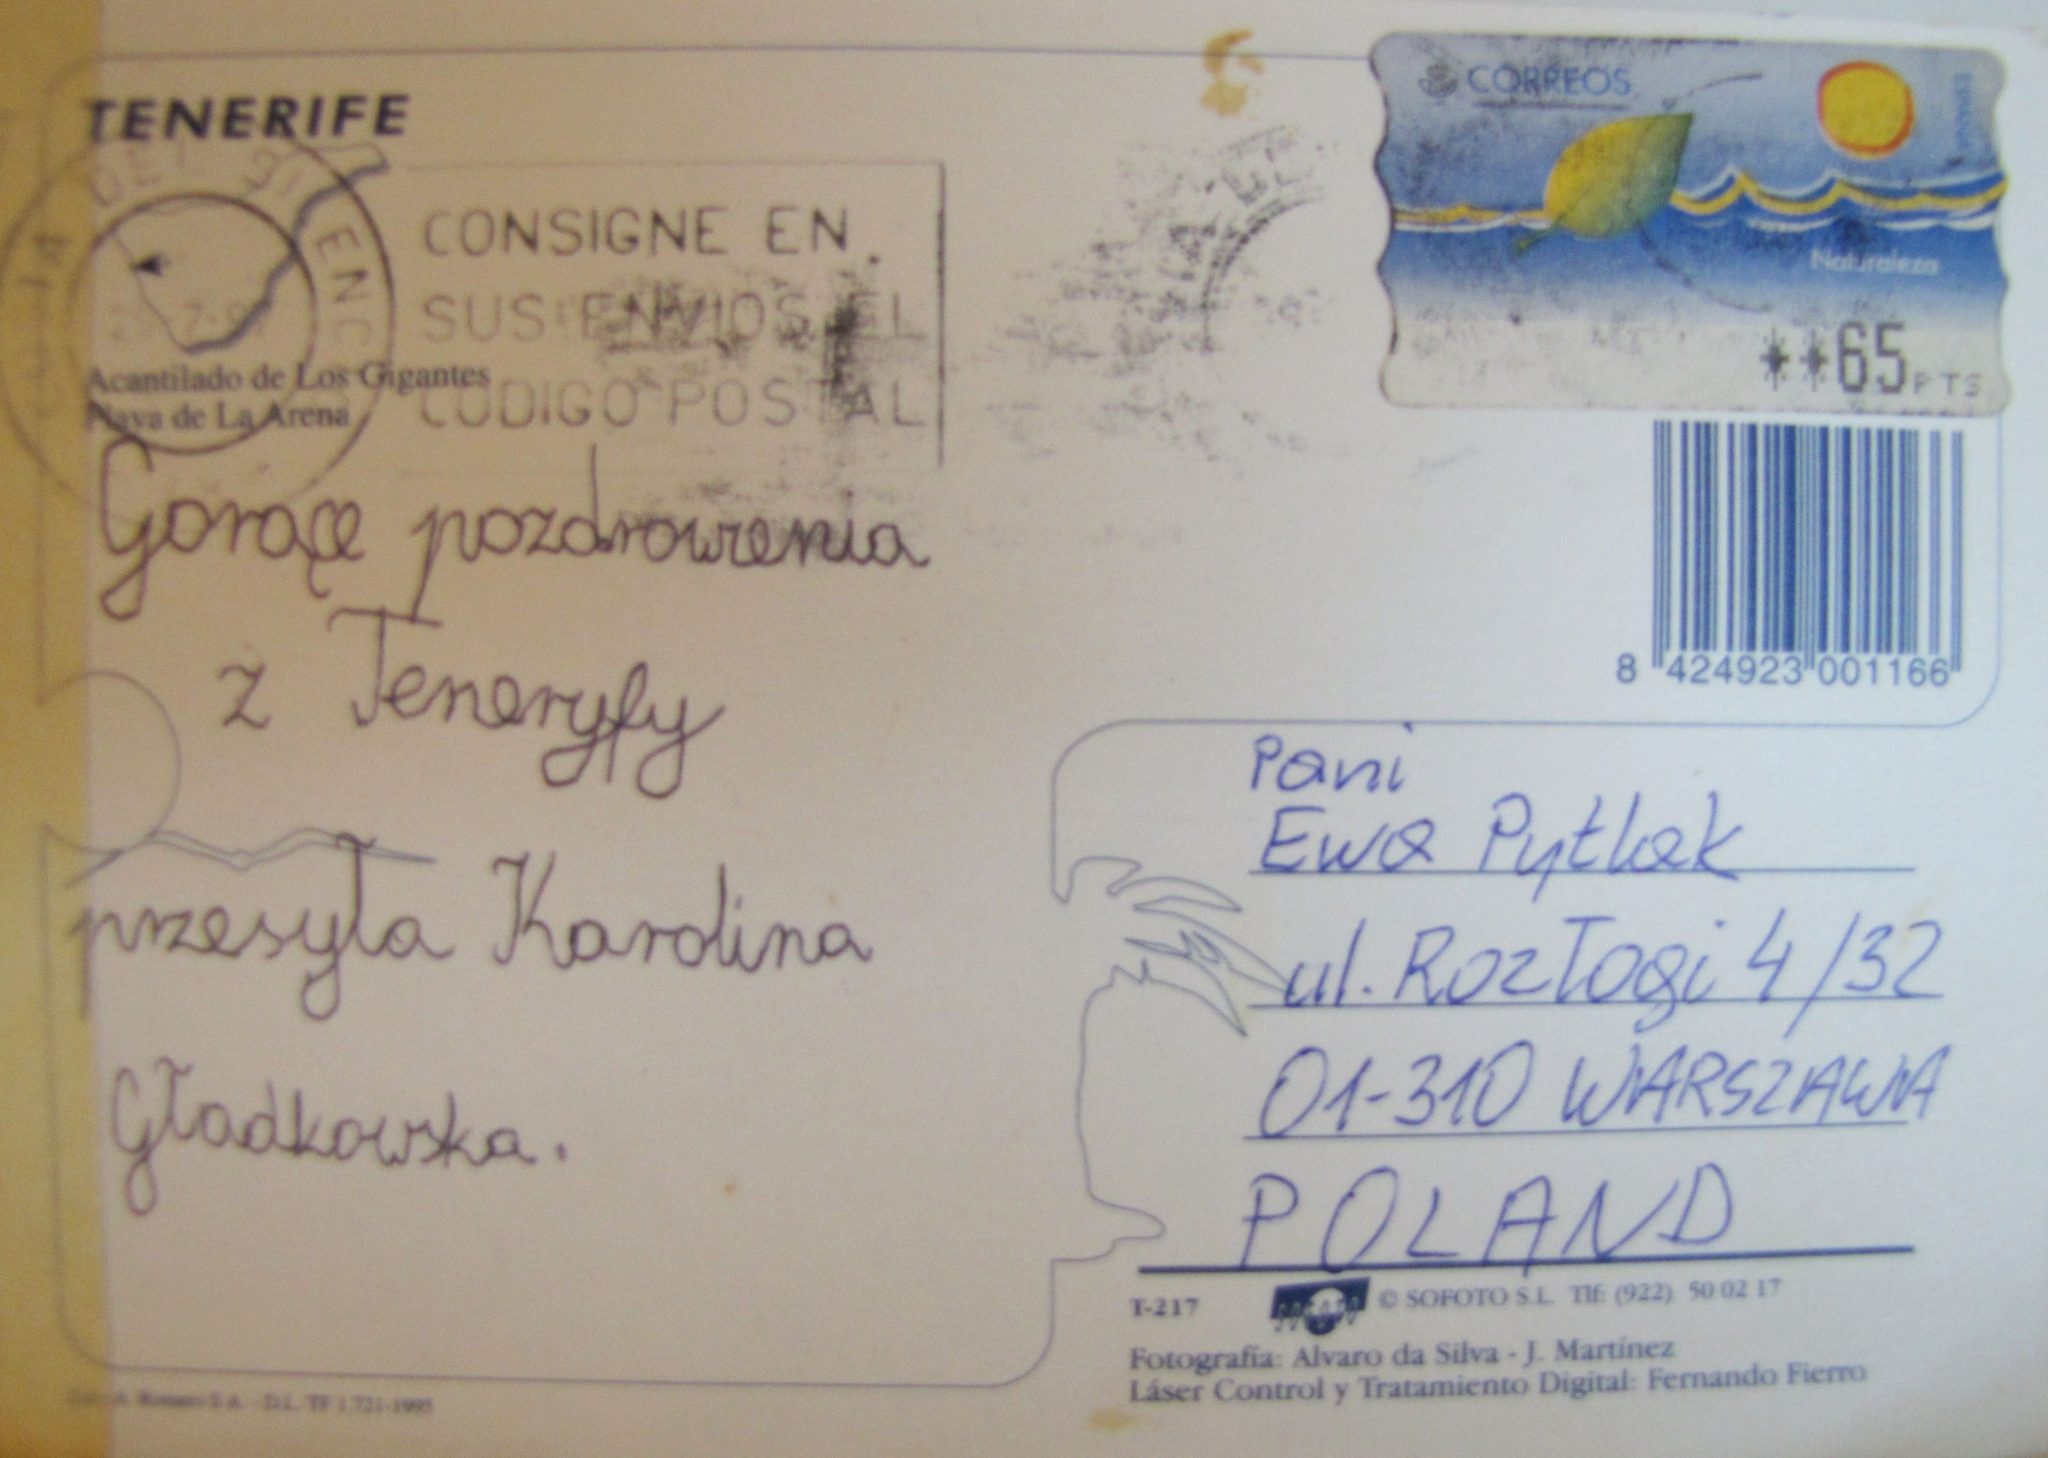 TENERIFE
CONSIGNE EN
SUS ENVIOS EL
CODIGO POSTAL
Acantilado de Los Gigantes
Playa de La Arena
Gorące pozdrowienia
z Teneryfy
przesyła Karolina
Gładkowska.
CORREOS
ESPAÑA
Naturaleza
**65 PTS
8 424923 001166
Pani
Ewa Pytlak
ul. Rozłogi 4/32
01-310 WARSZAWA
POLAND
T-217 © SOFOTO S.L. Tlf: (922) 50 02 17
Fotografía: Alvaro da Silva - J. Martínez
Láser Control y Tratamiento Digital: Fernando Fierro
Romero S.A. - D.L. TF 1.721-1995